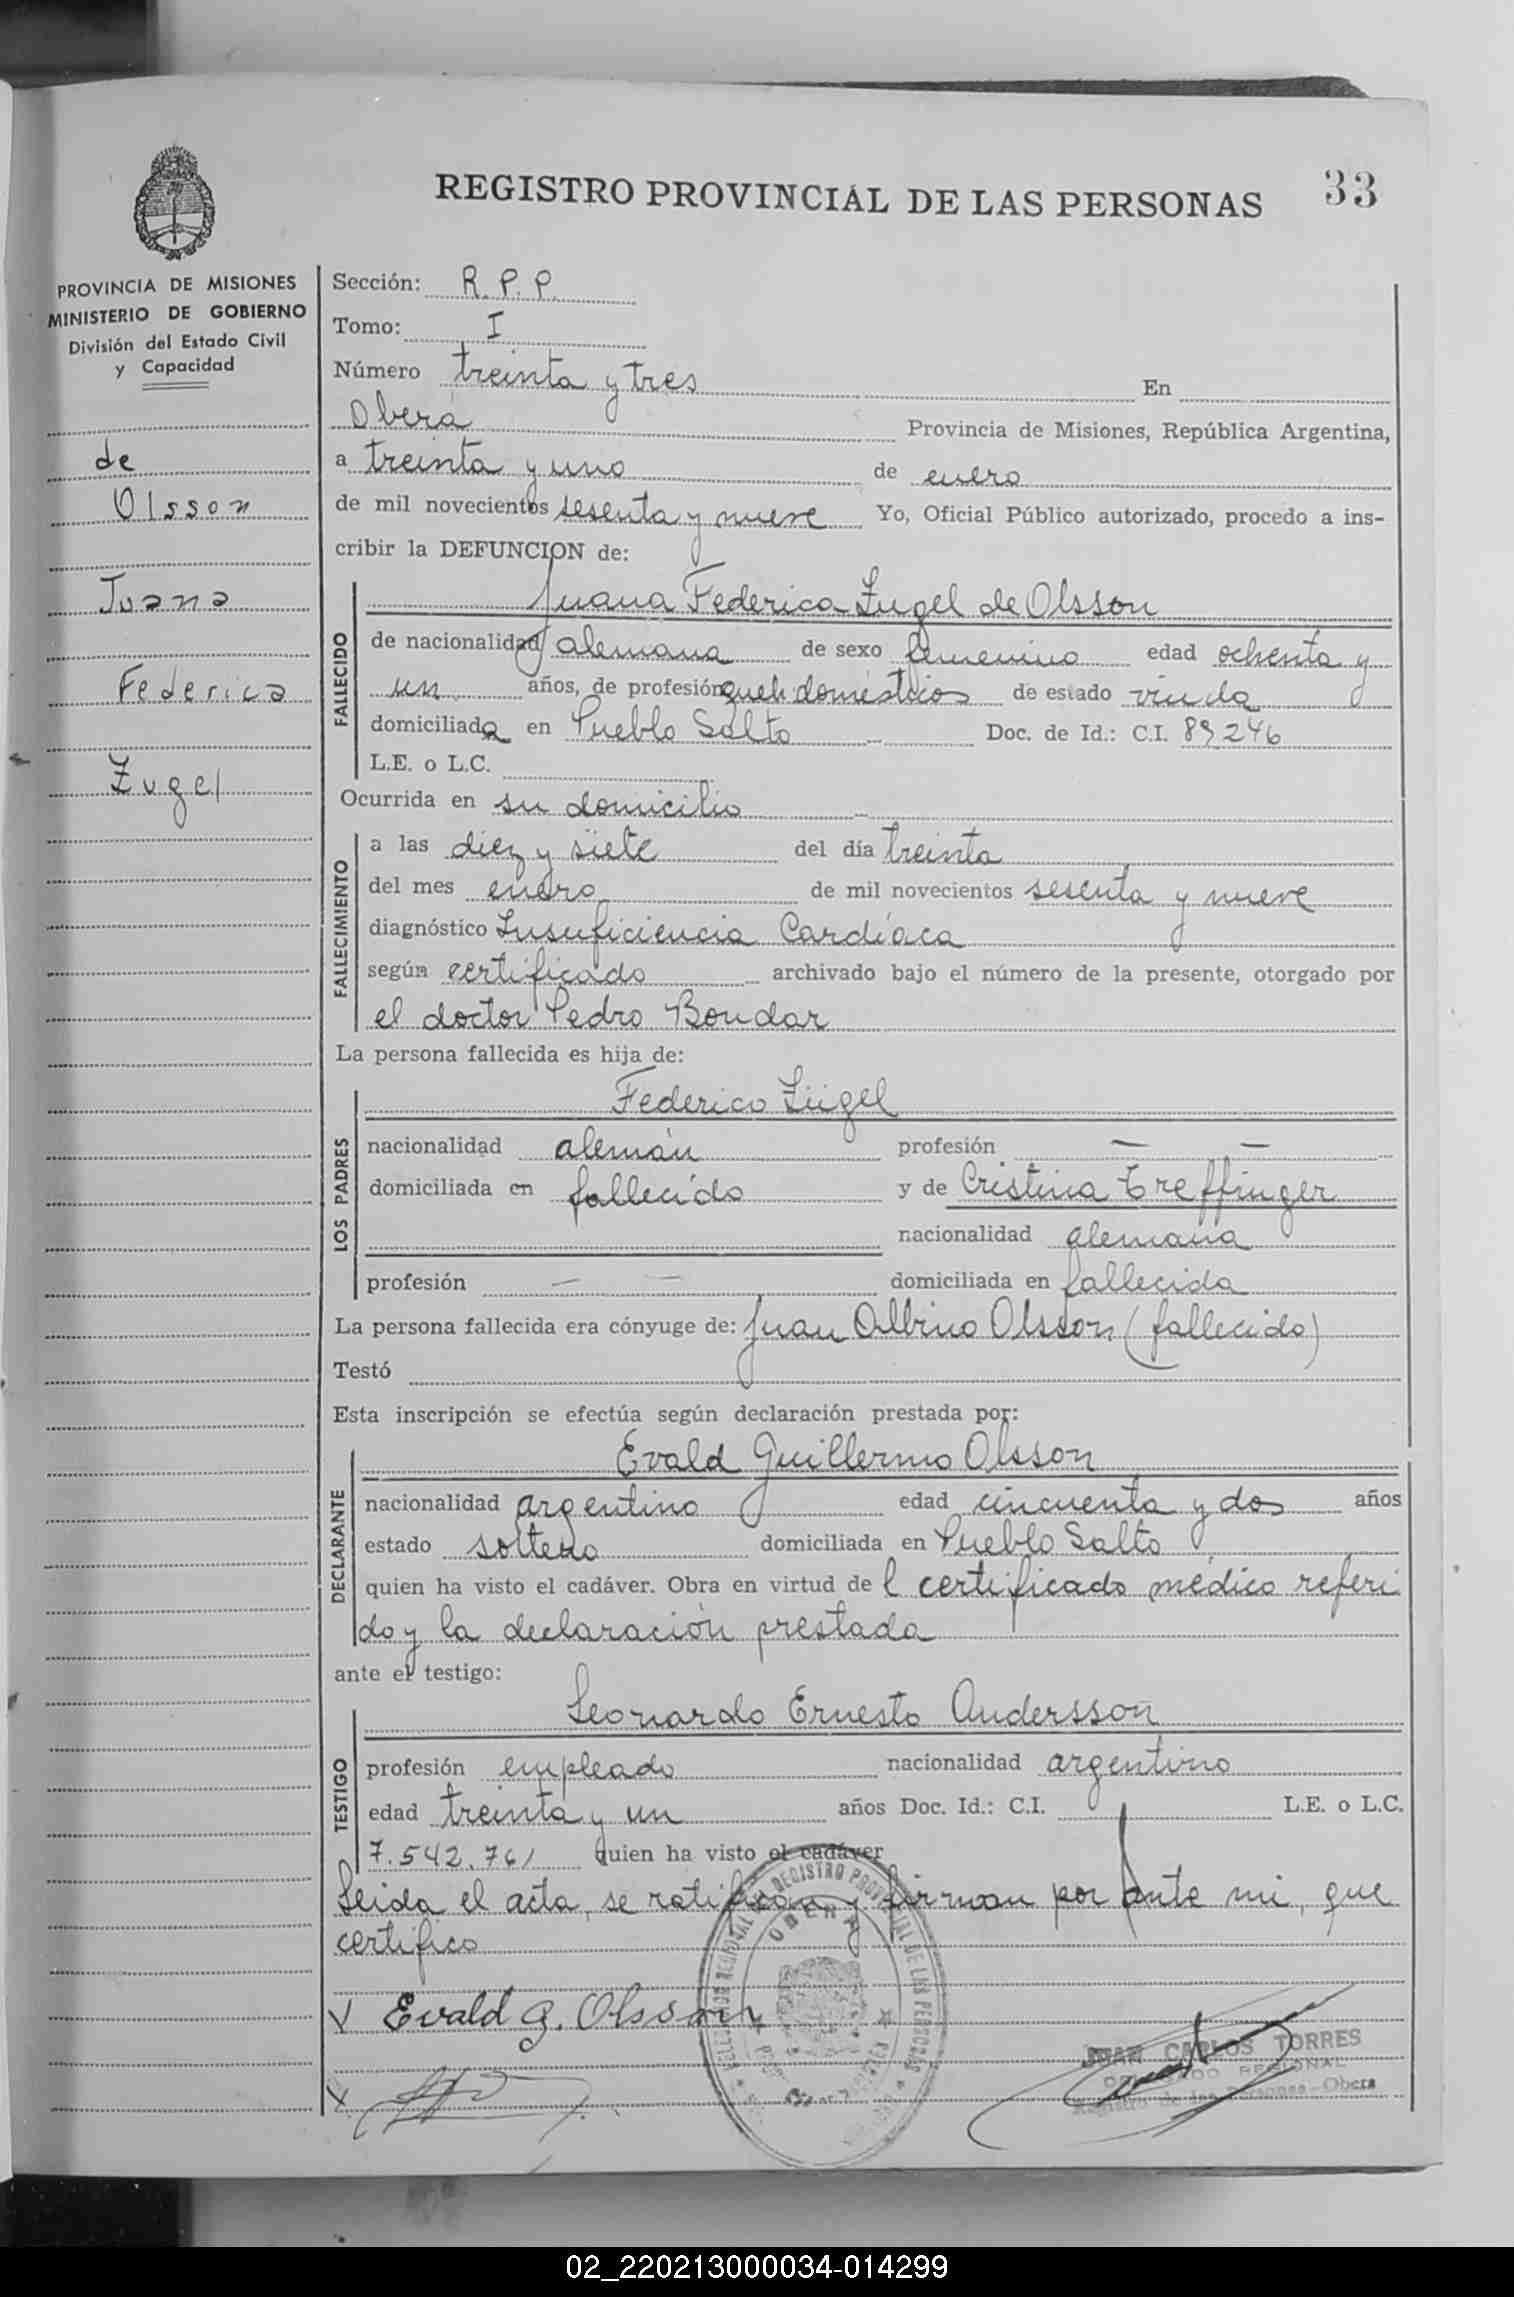 33
REGISTRO PROVINCIAL DE LAS PERSONAS
PROVINCIA DE MISIONES
MINISTERIO DE GOBIERNO
División del Estado Civil
y Capacidad
de
Olsson
Juana
Federica
Zugel
Sección: R. P. P.
Tomo: I
Número treinta y tres En
Oberá Provincia de Misiones, República Argentina,
a treinta y uno de enero
de mil novecientos sesenta y nueve Yo, Oficial Público autorizado, procedo a ins-
cribir la DEFUNCION de:
FALLECIDO
Juana Federica Zugel de Olsson
de nacionalidad alemana de sexo femenino edad ochenta y
un años, de profesión queh. domésticos de estado viuda
domiciliada en Pueblo Salto Doc. de Id.: C.I. 89246
L.E. o L.C.
Ocurrida en su domicilio
FALLECIMIENTO
a las diez y siete del día treinta
del mes enero de mil novecientos sesenta y nueve
diagnóstico Insuficiencia Cardíaca
según certificado archivado bajo el número de la presente, otorgado por
el doctor Pedro Bondar
La persona fallecida es hija de:
LOS PADRES
Federico Zügel
nacionalidad alemán profesión — —
domiciliada en fallecido y de Cristina Treffinger
nacionalidad alemana
profesión — — domiciliada en fallecida
La persona fallecida era cónyuge de: Juan Albino Olsson (fallecido)
Testó
Esta inscripción se efectúa según declaración prestada por:
DECLARANTE
Evald Guillermo Olsson
nacionalidad argentino edad cincuenta y dos años
estado soltero domiciliada en Pueblo Salto
quien ha visto el cadáver. Obra en virtud de l certificado médico referi
do y la declaración prestada
ante el testigo:
TESTIGO
Leonardo Ernesto Andersson
profesión empleado nacionalidad argentino
edad treinta y un años Doc. Id.: C.I. L.E. o L.C.
7.542.761 quien ha visto el cadáver
Leida el acta, se ratifican y firman por ante mi, que
certifico
Evald G. Olsson
REGISTRO PROVINCIAL DE LAS PERSONAS
OBERA
JUAN CARLOS TORRES
DELEGADO REGIONAL
Registro de las Personas - Obera
02_220213000034-014299